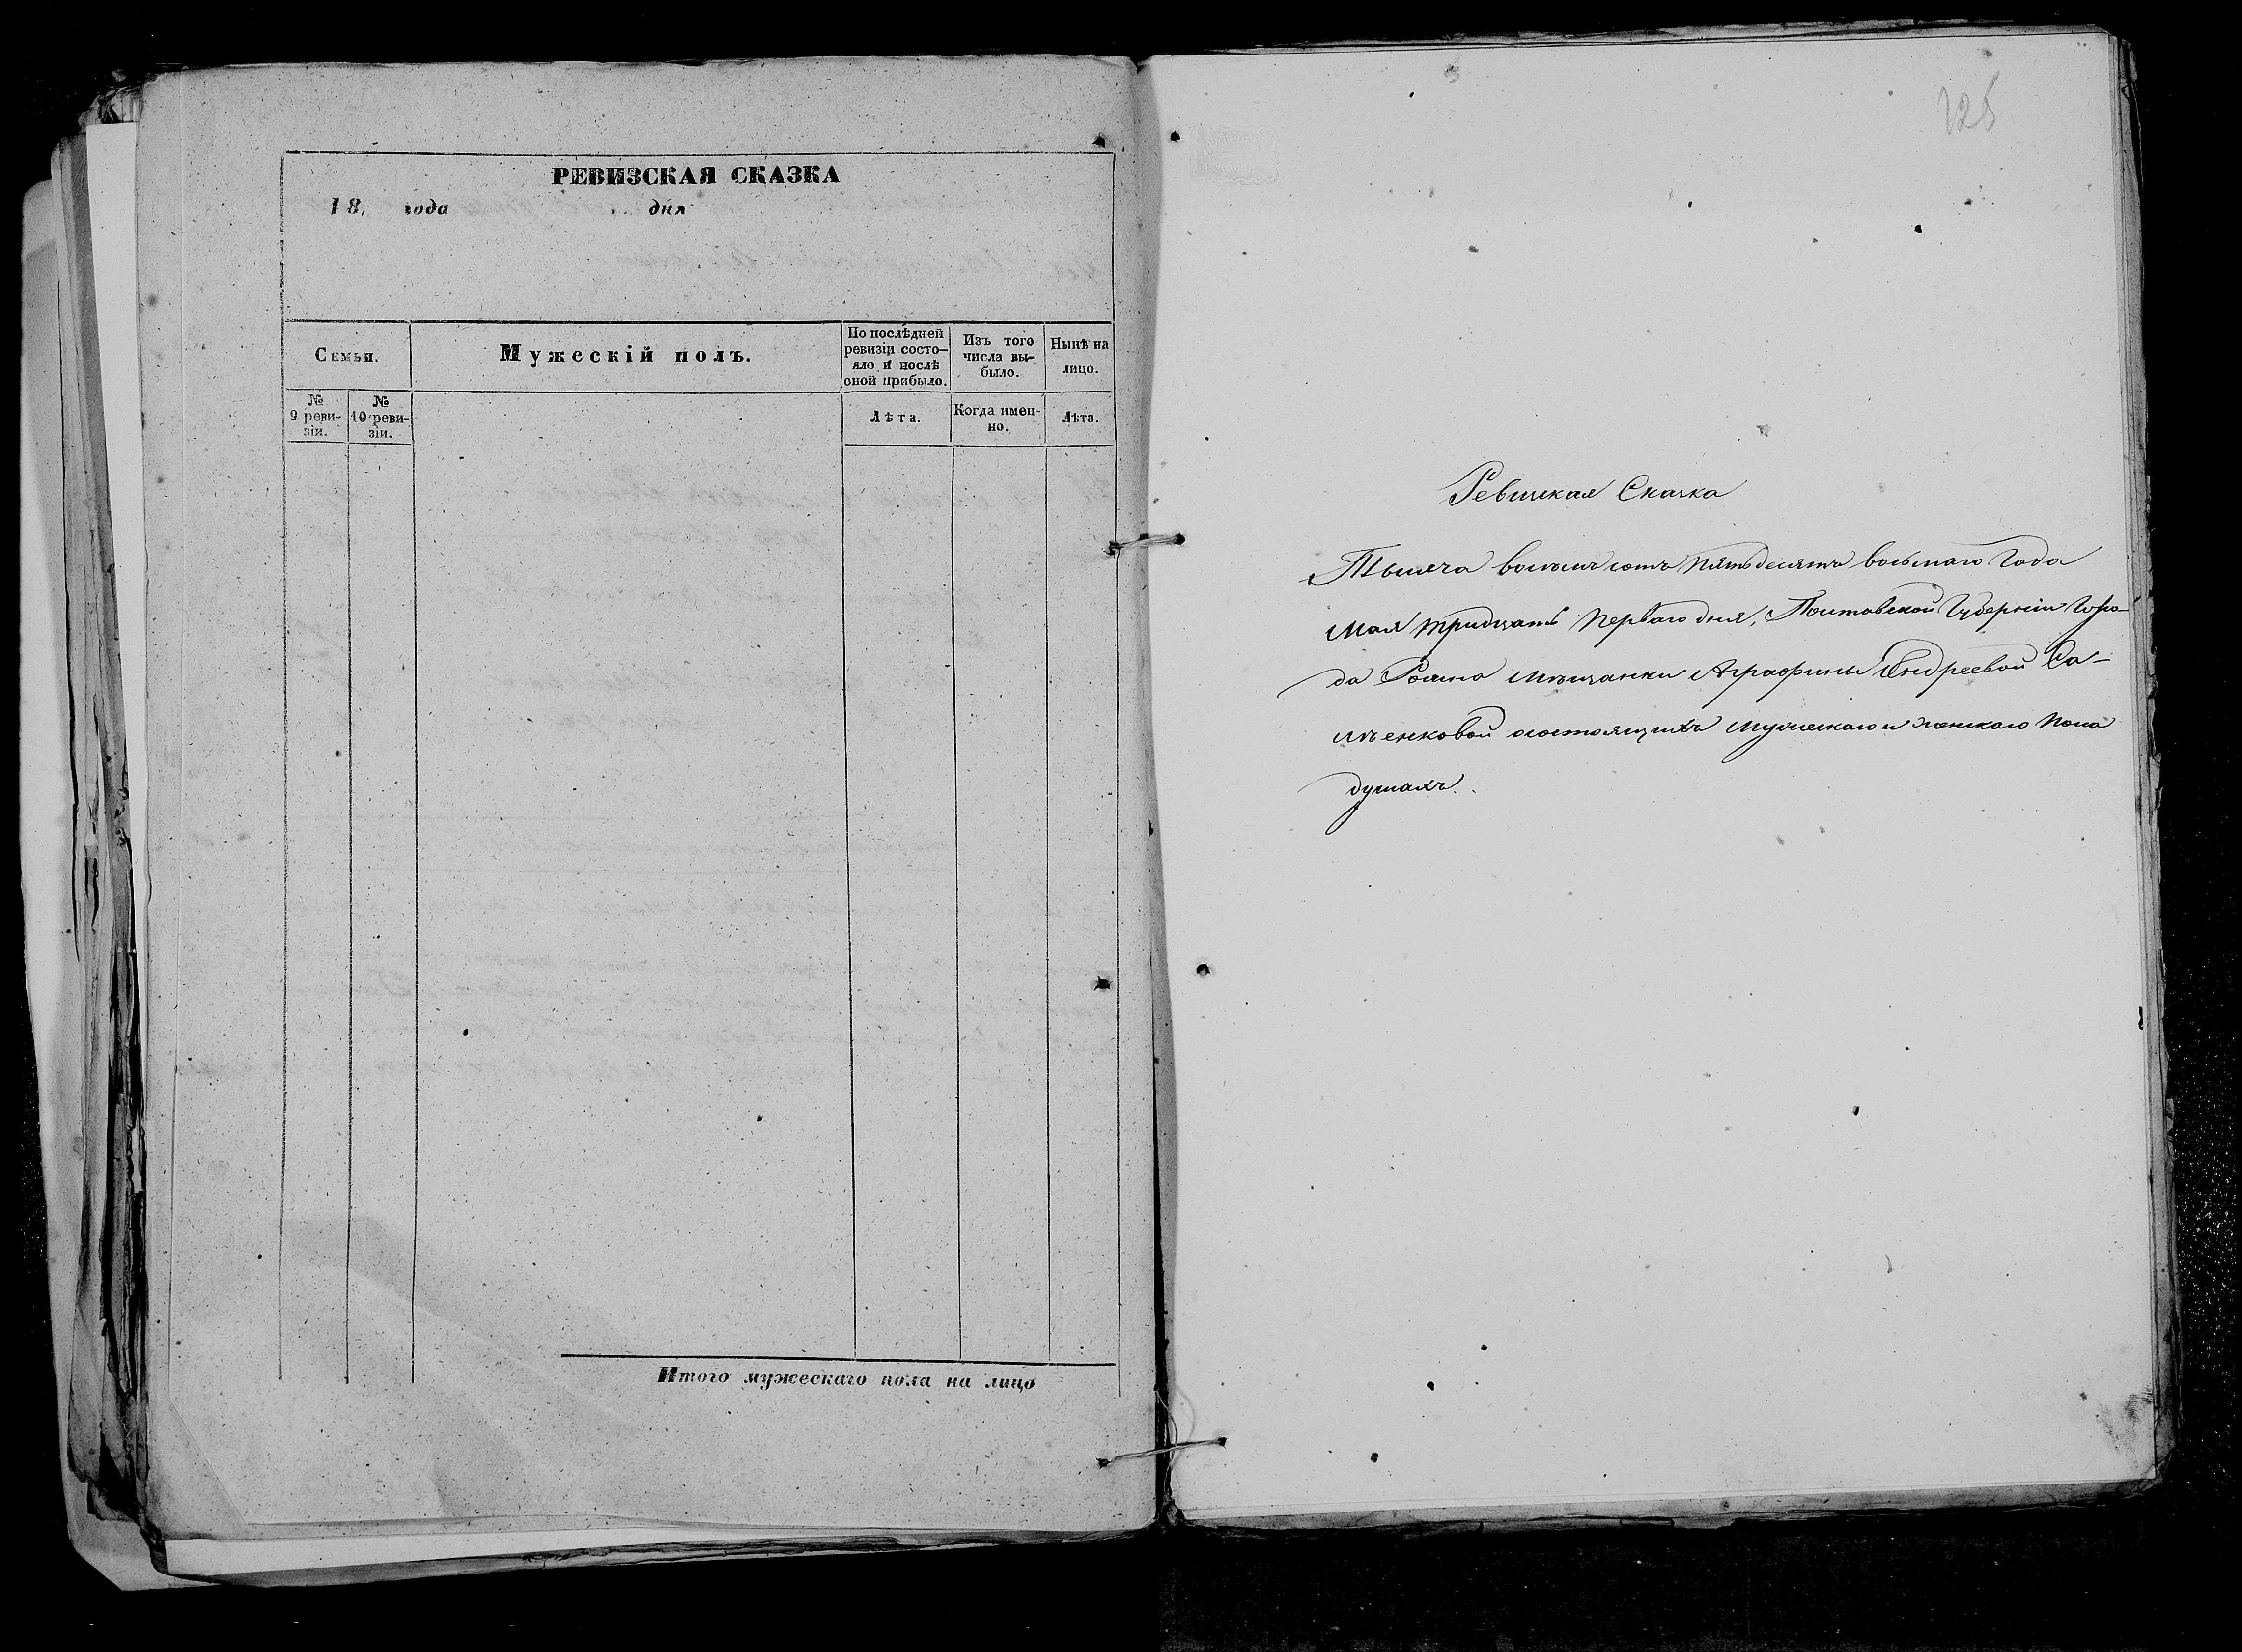 РЕВИЗСКАЯ СКАЗКА
18, года дня
Семьи.
Мужескій полъ.
По послѣдней
ревизіи состо-
яло и послѣ
оной прибыло.
Изъ того
числа вы-
было.
Нынѣ на
лицо.
№
9 реви-
зіи.
№
10 реви-
зіи.
Лѣта.
Когда имен-
но.
Лѣта.
Итого мужескаго пола на лицо
125
Ревизкая Сказка
Тысяча восемъ сотъ пятьдесятъ восьмаго Года
Мая тридцать перваго дня, Полтавской Губерніи Горо-
да Ромна мѣщанки Аграфины Андреевой
состоящихъ мужескаго и женскаго пола
душахъ.